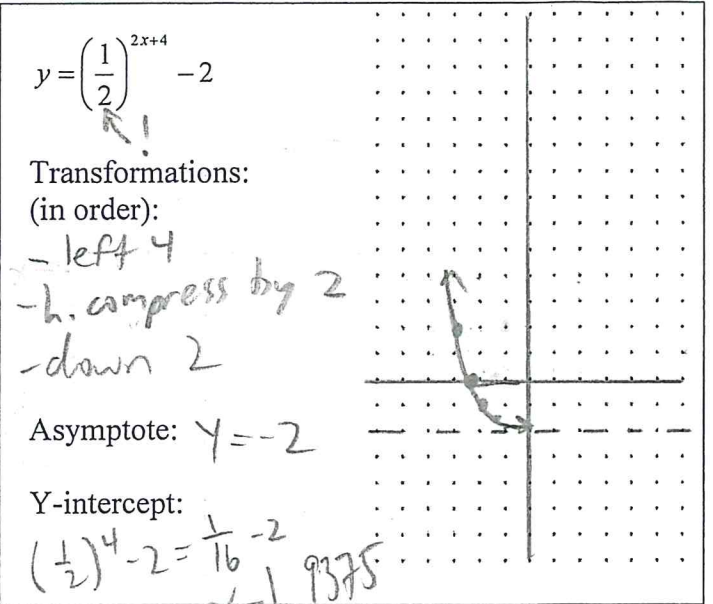 y = (1/2)^{2x+4} - 2
!
Transformations:
(in order):
- left 4
- h. compress by 2
- down 2
Asymptote: y = -2
Y-intercept:
(1/2)^4 - 2 = 1/16 - 2
-1.9375